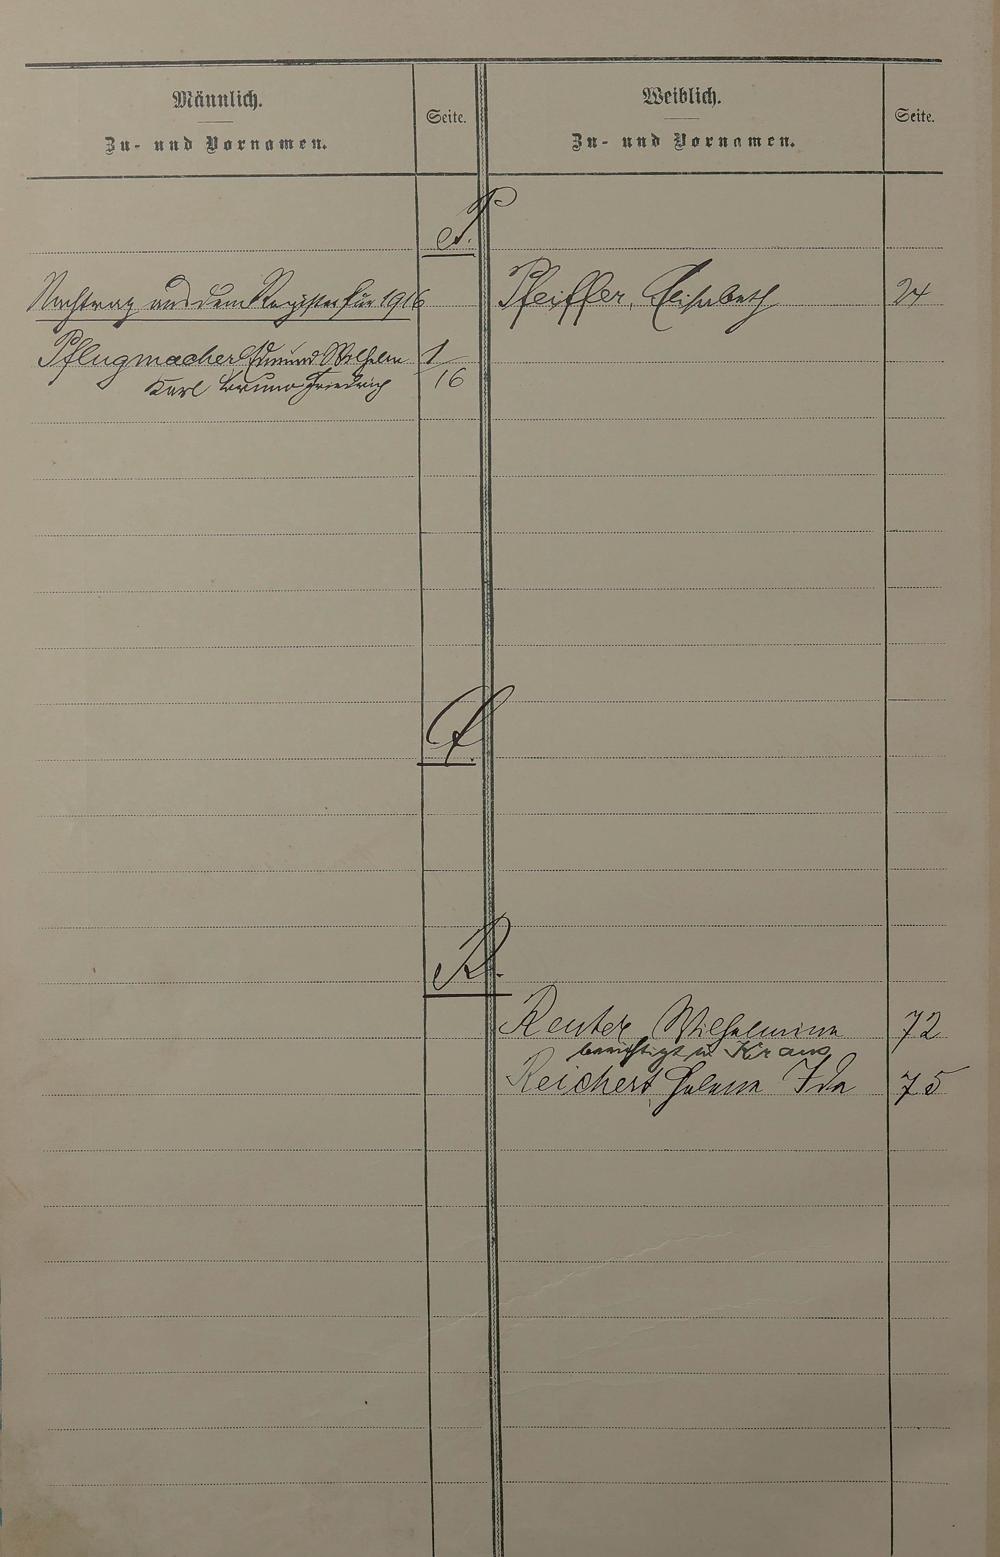 Männlich.
Zu- und Vornamen.
Seite.
Weiblich.
Zu- und Vornamen.
Seite.
P.
Nachtrag aus dem Register für 1916
Pfeiffer, Elisabeth 24
Pflugmacher Edmund Wilhelm 1/16
Karl Bruno Friedrich
Q.
R.
Reuter, Wilhelmine 72
berichtigt in Kraus
Reichert, Helene Ida 75